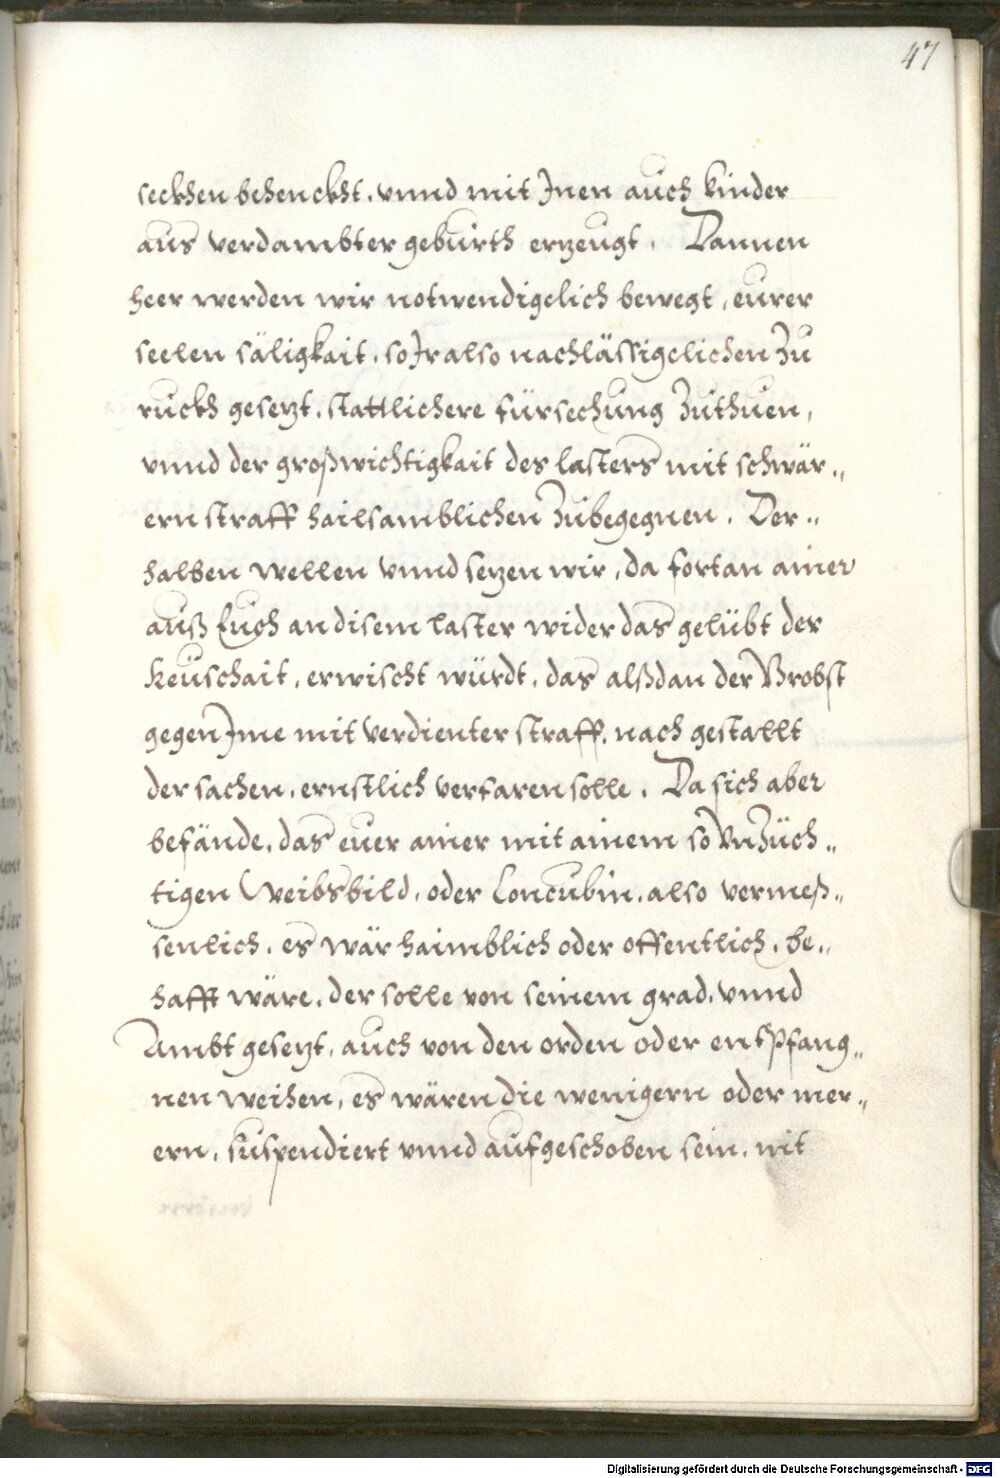 47
seckhen behenckht, vnnd mit Inen auch kinder
aus verdambter geburth erzeugt. Dannen
heer werden wir notwendigelich bewegt, eurer
seelen säligkait, so Ir also nachlässigelichen Zu
ruckh gesezt, stattlichere fürsechung Zuthuen,
vnnd der großwichtigkait des lasters mit schwär„
ern straff hailsamblichen Zubegegnen. Der„
halben wellen vnnd sezen wir, da fortan ainer
auß Euch an disem laster wider das gelübt der
Keuschait, erwischt würdt, das alßdan der Brobst
gegen Ime mit verdienter straff, nach gestallt
der sachen, ernstlich verfaren solle. Da sich aber
befände, das euer ainer mit ainem so VnZüch„
tigen Weibsbild, oder Concubin, also vermeß„
senlich, es wär haimblich oder offentlich, be„
hafft wäre, der solle von seinem grad, vnnd
Ambt gesezt, auch von den orden oder entpfang„
nen weihen, es wären die wenigern oder mer„
ern, suspendiert vnnd aufgeschoben sein, nit
Digitalisierung gefördert durch die Deutsche Forschungsgemeinschaft - DFG